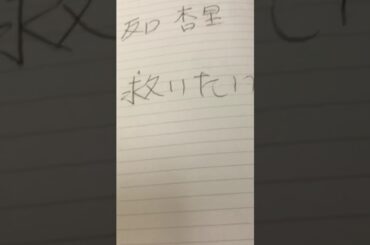 知 杏里
救いたい